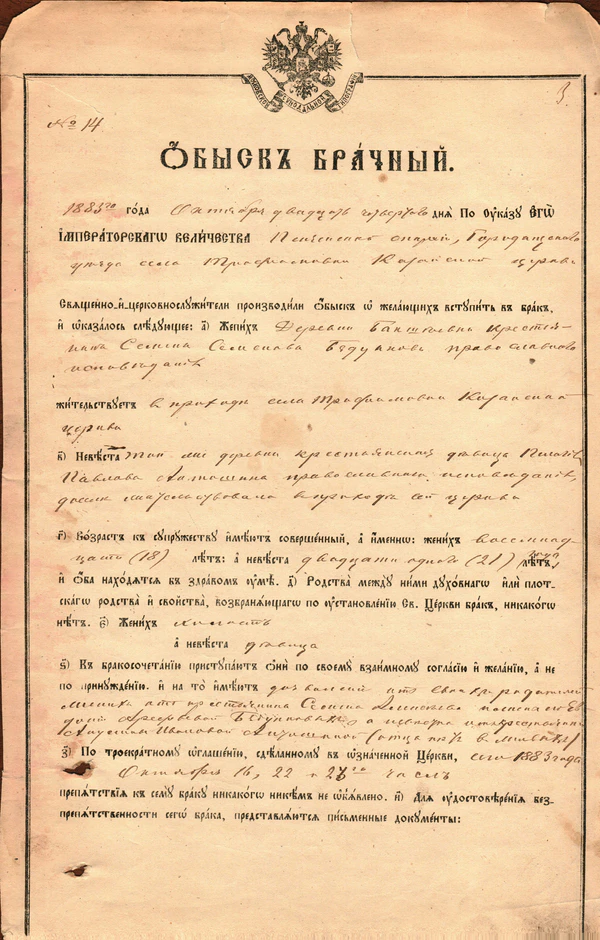 3.
№ 14
Ѻбыскъ бра́чный.
1883го го́да Октября двадцать четвертого дня̀ По ᲂу҆ка́зу Є҆гѡ̀
І҆мпера́торскагѡ вели́чества Пензенской епархіи, Городищенскаго
уѣзда села Трофимовки Казанской церкви
Свѧще́нно-и҆-церковнослужи́тели производи́ли ѻ҆́быскъ ѡ҆ жела́ющихъ вступи́ть въ бра́къ,
и҆ ѡ҆каза́лось слѣ́дующее: а҃) Жени́хъ Деревни крестья-
нинъ Семенъ Семеновъ православнаго
исповѣданія
жи́тельствуетъ въ приходѣ села Трофимовки Казанской
церкви
в҃) Невѣ́ста той же деревни крестьянская дѣвица
Павлова Антошина православнаго исповѣданія,
жительствовала въ приходѣ сей церкви
г҃) Во́зрастъ къ супру́жеству и҆мѣ́ютъ соверше́нный, а҆ и҆́меннѡ: жени́хъ восемнад-
цати (18) лѣ́тъ: а҆ невѣ́ста двадцати одного (21) года лѣ́тъ,
и҆ ѻ҆́ба нахо́дѧтсѧ въ здра́вомъ ᲂу҆мѣ̀. д҃) Родства̀ ме́жду ни́ми дꙋхо́внагѡ и҆лѝ пло́т-
скагѡ родства̀ и҆ сво́йства, возбранѧ́ющагѡ по ᲂу҆становле́нїю Св. Це́ркви бра́къ, никако́гѡ
нѣ́тъ. є҃) Жени́хъ холостъ
а҆ невѣ́ста дѣвица
ѕ҃) Къ бракосочета́нїю приступа́ютъ ѻ҆нѝ по своемꙋ̀ взаи́мномꙋ согла́сїю и҆ жела́нїю, а҆ не
по принꙋжде́нїю. и҆ на то̀ и҆мѣ́ютъ дозволеніе отъ своихъ родителей
женихъ отъ крестьянина Семена
а невѣста отъ крестьянки
Ивановой Антошиной (отца нѣтъ въ живыхъ)
з҃) По троекра́тномꙋ ѡ҆глаше́нїю, сдѣ́ланномꙋ въ ѡ҆зна́ченной Це́ркви, сего 1883 года
Октября 16, 22 и 23го числъ
препѧ́тствїѧ къ семꙋ̀ бра́кꙋ никако́гѡ никѣ́мъ не ѡ҆б̾ѧ́влено. и҃) Длѧ ᲂу҆достовѣре́нїѧ без-
препѧ́тственности сегѡ̀ бра́ка, представлѧ́ютсѧ пи́сьменные докꙋме́нты: